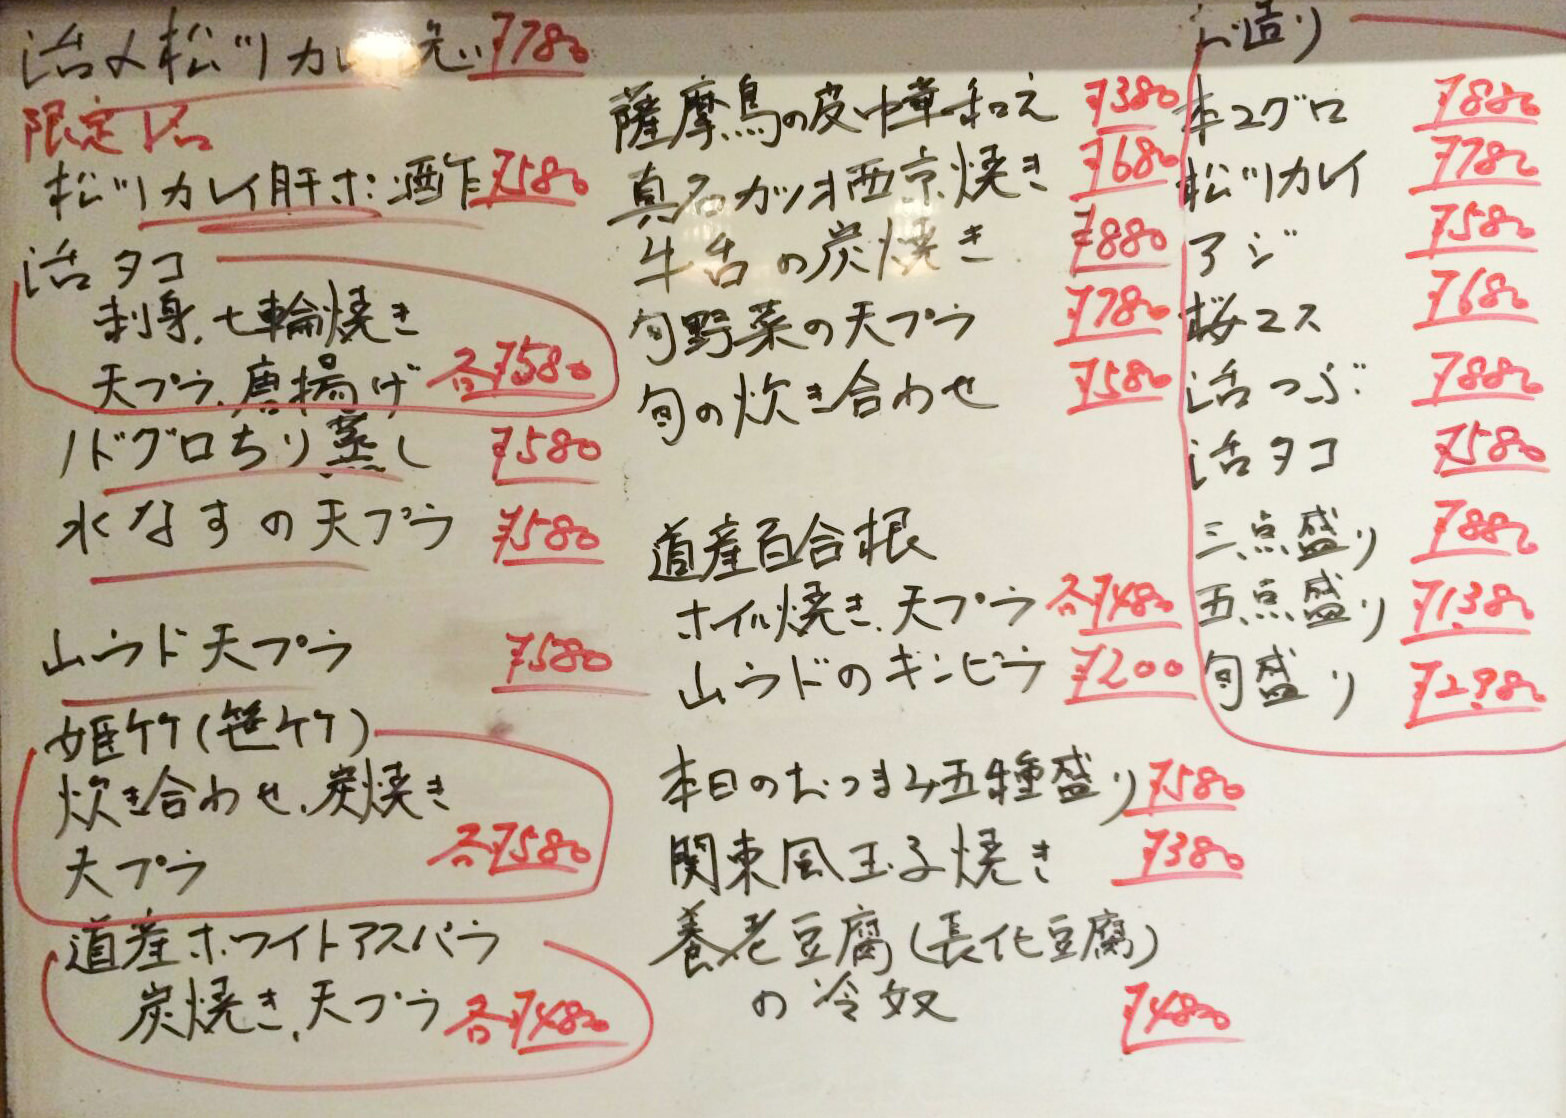 活〆松ツリカレ
¥780
限定1品
松ツリカレイ肝ポン酢 ¥580
活タコ
刺身、七輪焼き
天プラ、唐揚げ 各¥580
ノドグロちり蒸し ¥580
水なすの天プラ ¥580
山ウド天プラ ¥580
姫竹(笹竹)
炊き合わせ、炭焼き
天プラ 各¥580
道産ホワイトアスパラ
炭焼き、天プラ 各¥480
薩摩鳥の皮 和え ¥380
真名ガツオ西京焼き ¥680
牛舌の炭焼き ¥880
旬野菜の天プラ ¥780
旬の炊き合わせ ¥580
道産百合根
ホイル焼き、天プラ 各¥480
山ウドのキンピラ ¥200
本日のおつまみ五種盛り ¥580
関東風玉子焼き ¥380
養老豆腐(長化豆腐)
の冷奴
¥480
お造り
本マグロ ¥880
松ツリカレイ ¥780
アジ ¥580
桜マス ¥680
活つぶ ¥880
活タコ ¥580
三点盛り ¥880
五点盛り ¥1,380
旬盛り ¥2,980